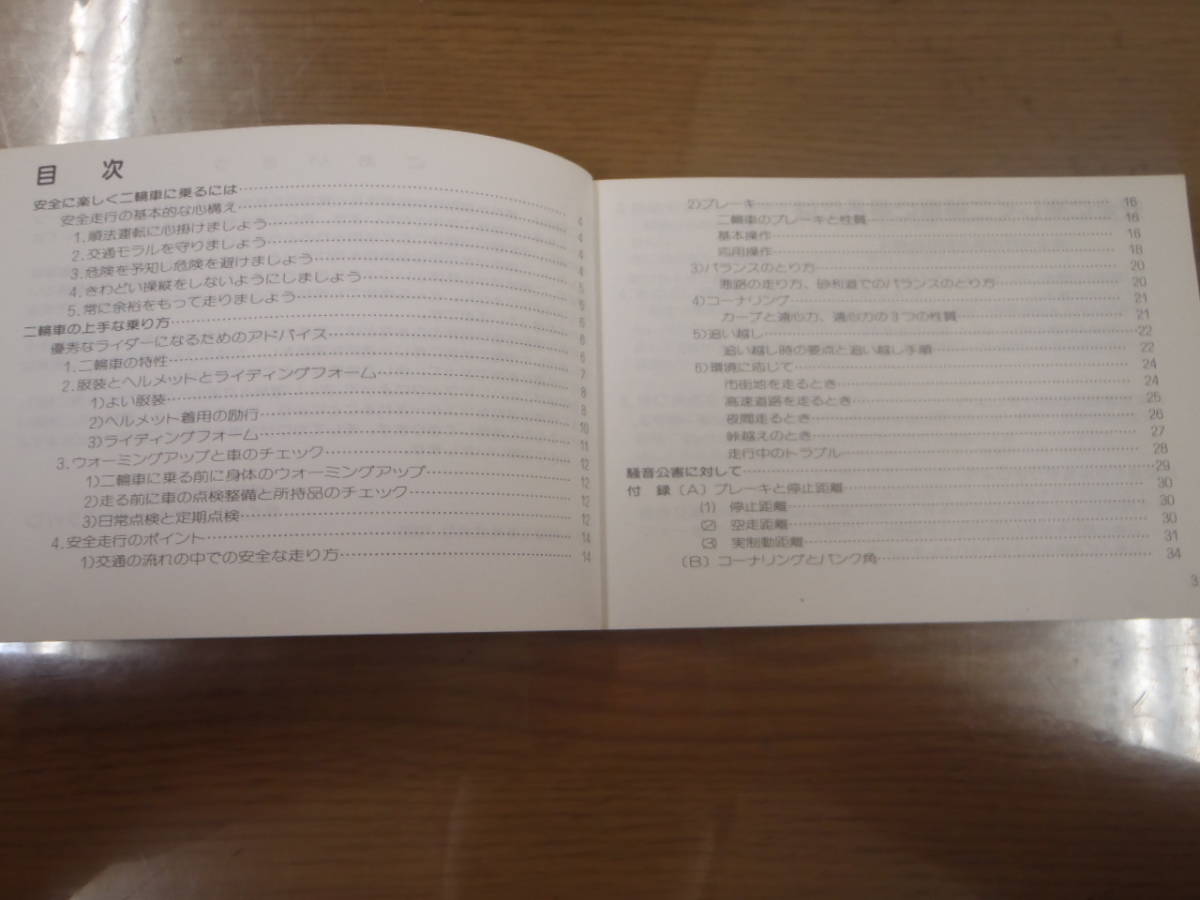 目 次
安全に楽しく二輪車に乗るには…4
安全走行の基本的な心構え…4
1.順法運転に心掛けましょう…4
2.交通モラルを守りましょう…4
3.危険を予知し危険を避けましょう…5
4.きわどい操縦をしないようにしましょう…
5.常に余裕をもって走りましょう…6
二輪車の上手な乗り方…6
優秀なライダーになるためのアドバイス…6
1.二輪車の特性…7
2.服装とヘルメットとライディングフォーム…8
1)よい服装…8
2)ヘルメット着用の励行…10
3)ライディングフォーム…11
3.ウォーミングアップと車のチェック…12
1)二輪車に乗る前に身体のウォーミングアップ…12
2)走る前に車の点検整備と所持品のチェック…12
3)日常点検と定期点検…12
4.安全走行のポイント…14
1)交通の流れの中での安全な走り方…14
2)ブレーキ…16
二輪車のブレーキと性質…16
基本操作…16
応用操作…18
3)バランスのとり方…20
悪路の走り方、砂利道でのバランスのとり方…20
4)コーナリング…21
カーブと遠心力、遠心力の3つの性質…21
5)追い越し…22
追い越し時の要点と追い越し手順…22
6)環境に応じて…24
市街地を走るとき…24
高速道路を走るとき…25
夜間走るとき…26
峠越えのとき…27
走行中のトラブル…28
騒音公害に対して…29
付 録〔A〕ブレーキと停止距離…30
(1) 停止距離…30
(2) 空走距離…30
(3) 実制動距離…31
〔B〕コーナリングとバンク角…34
3